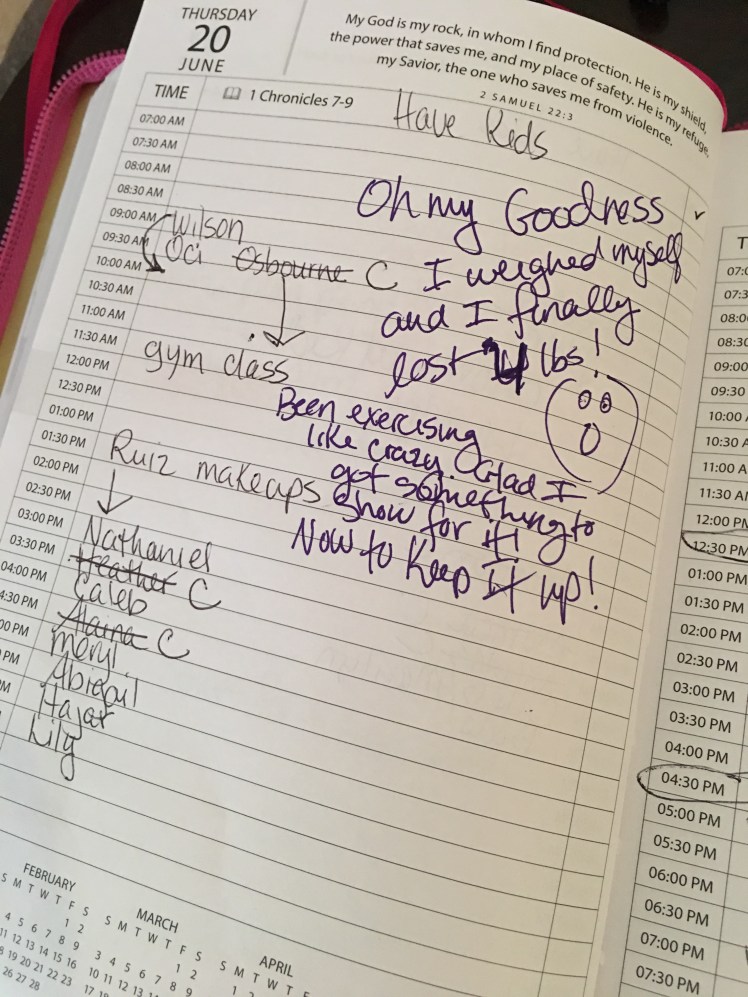 THURSDAY
20
JUNE
My God is my rock, in whom I find protection. He is my shield,
the power that saves me, and my place of safety. He is my refuge,
my Savior, the one who saves me from violence.
2 SAMUEL 22:3
TIME
1 Chronicles 7-9
Have Kids
07:00 AM
07:30 AM
08:00 AM
08:30 AM
09:00 AM Wilson
09:30 AM Oci Osbourne C
10:00 AM
10:30 AM
11:00 AM
11:30 AM gym class
12:00 PM
12:30 PM
01:00 PM
01:30 PM Ruiz makeups
02:00 PM
02:30 PM
03:00 PM Nathaniel
03:30 PM Heather C
04:00 PM Caleb
4:30 PM Alaina C
00 PM Meryl
PM Abigail
M Hajar
Lily
Oh my Goodness
I weighed myself
and I finally
lost 4 lbs!
Been exercising
like crazy. Glad I
got something to
show for it!
Now to Keep It up!
FEBRUARY
S M T W T F S
1 2
4 5 6 7 8 9
11 12 13 14 15 16
18 19 20 21 22 23
26 27 28
MARCH
S M T W T F S
1 2
3 4 5 6 7 8 9
10 11 12 13 14
17 18
APRIL
S M T W T F
1 2
T
07:0
07:3
08:0
08:30
09:00
09:30
10:00
10:30 A
11:00 A
11:30 AM
12:00 PM
12:30 PM
01:00 PM
01:30 PM
02:00 PM
02:30 PM
03:00 PM
03:30 PM
04:00 PM
04:30 PM
05:00 PM
05:30 PM
06:00 PM
06:30 PM
07:00 PM
07:30 PM